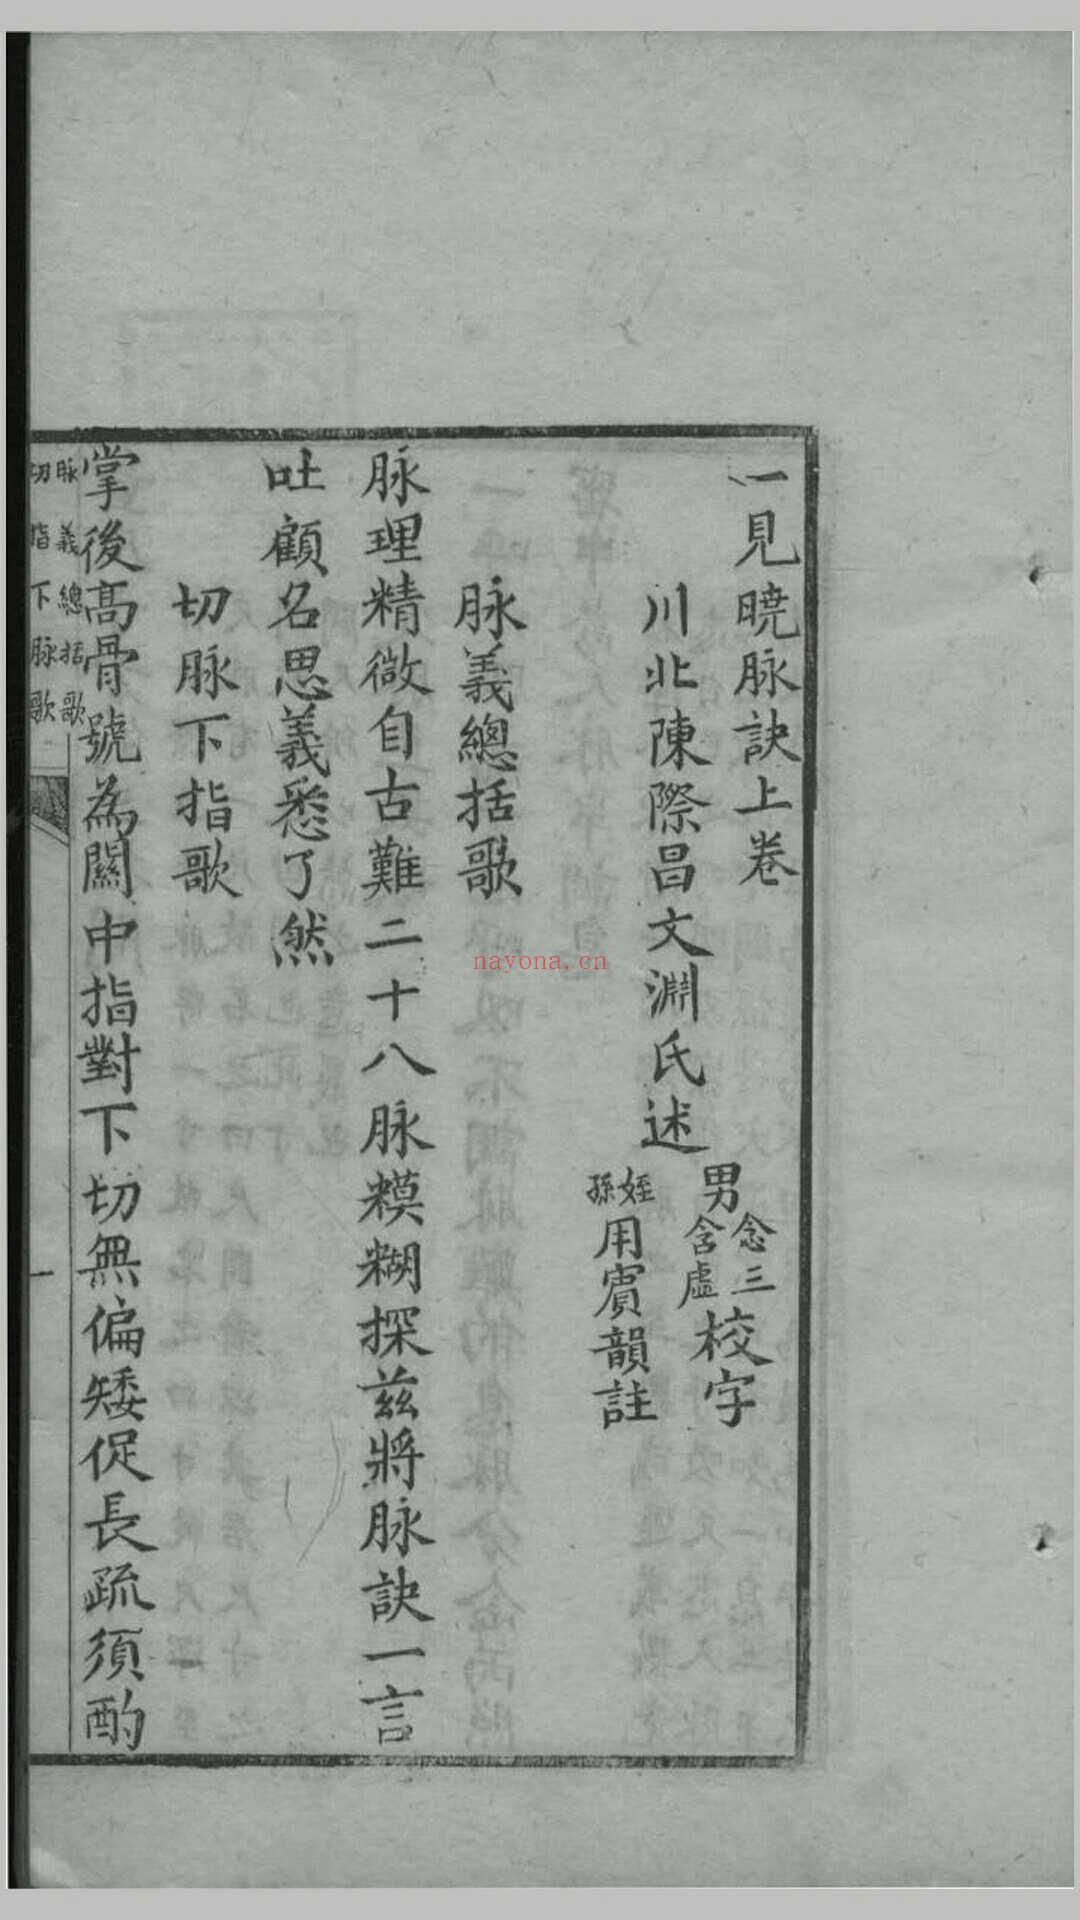 一見曉脉訣上卷
川北陳際昌文淵氏述
男念三含虛校字
姪孫用賓韻註
脉義總括歌
脉理精微自古難二十八脉糢糊探兹將脉訣一言
吐顧名思義悉了然
切脉下指歌
掌後髙骨號為關中指對下切無偏矮促長疏須酌
脉義總括歌
切指下脉歌
一
nayona.cn